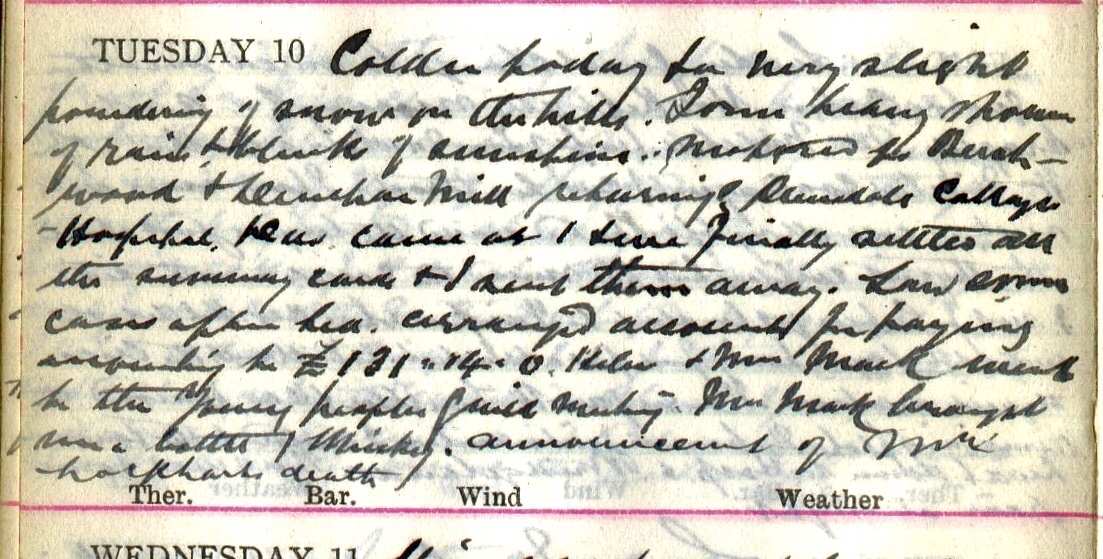 TUESDAY 10 Colder today a very slight
powdering of snow on the hills. Some heavy showers
of rain & blinks of sunshine. Motored to Birch-
wood & Mill returning Cottage
Hospital. came at 1 & we finally settled all
the summary cards & I sent them away. Saw some
cases after tea. arranged accounts for paying
amounting to £131-14-0. Helen & Mrs Mack went
to the Young peoples Guild meeting. Mrs Mack brought
me a bottle of Whisky. announcement of Mr
Lockharts death
Ther. Bar. Wind Weather
WEDNESDAY 11